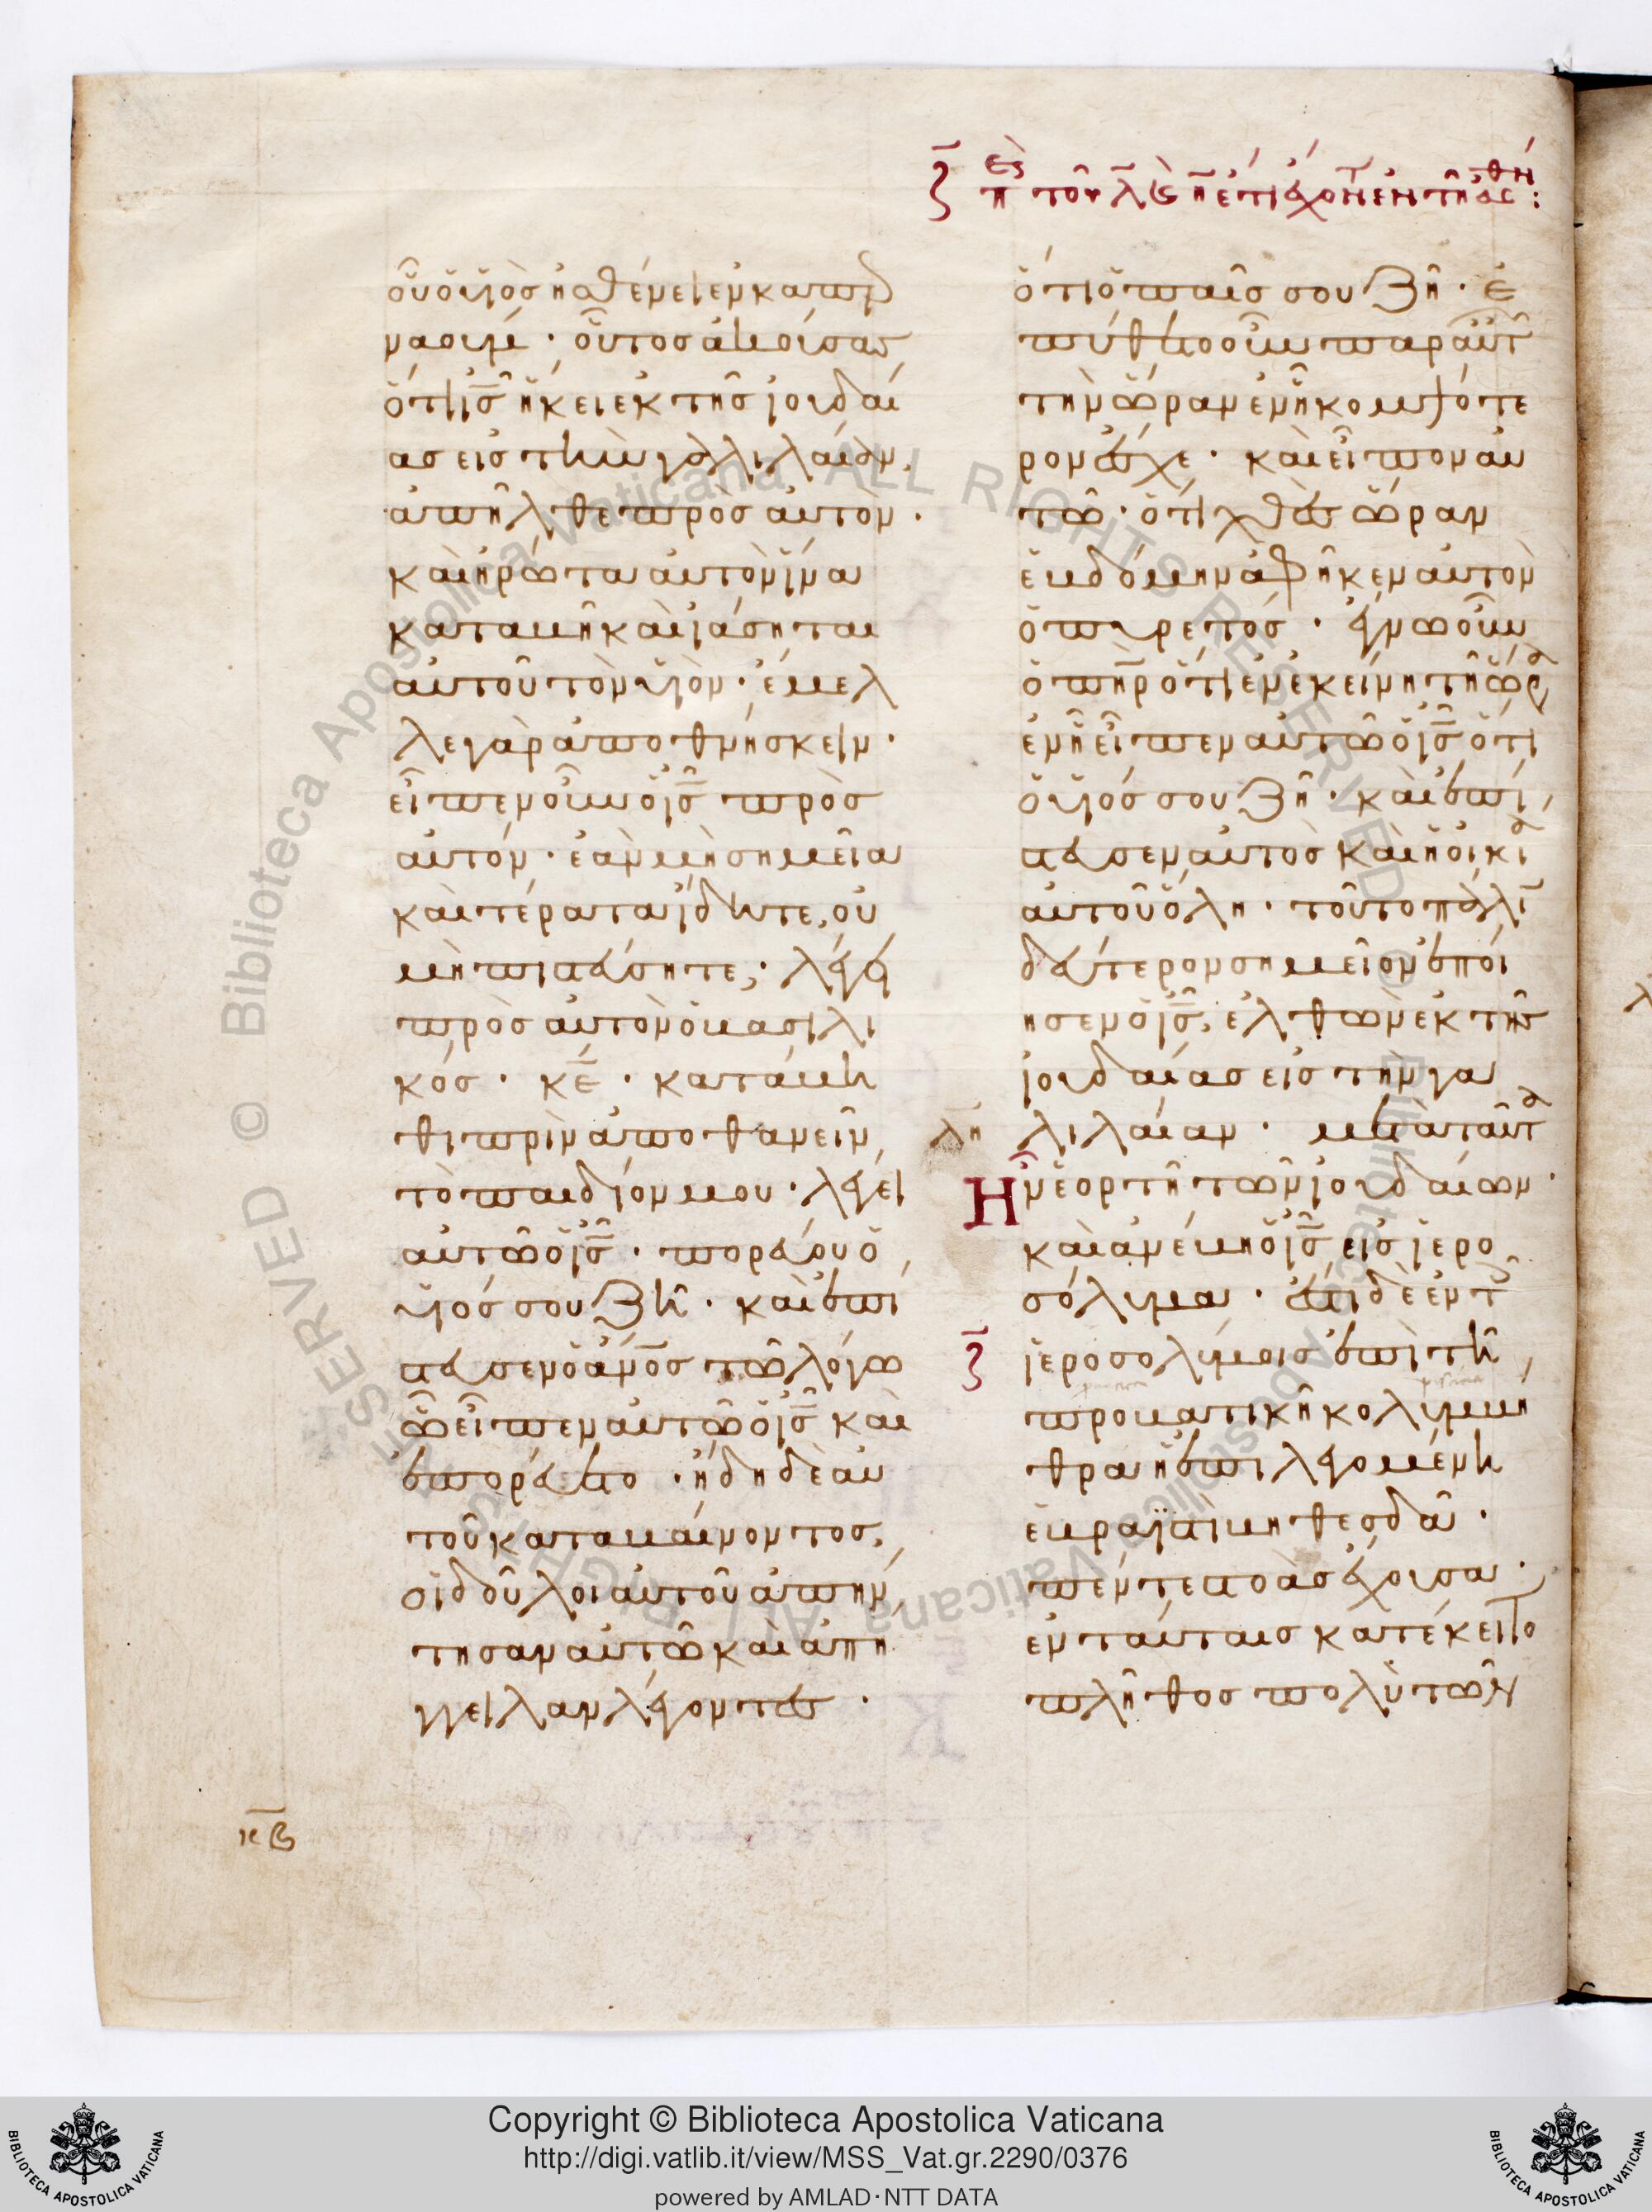 ζ̄ περὶ τοῦ λη ἔτη ἔχοντ ἐν τῆ ἀσθεν:
οὗ ὁ υἱὸς ἠσθένει ἐν καπερ
ναούμ · οὗτος ἀκούσας
ὅτι ις ἥκει ἐκ τῆς ἰουδαί
ας εἰς τὴν γαλιλαίαν,
ἀπῆλθε πρὸς αὐτὸν ·
καὶ ἠρώτα αὐτὸν ἵνα
καταβῆ καὶ ἰάσηται
αὐτοῦ τὸν υἱὸν · ἔμελ
λε γὰρ ἀποθνήσκειν ·
εἶπεν οὖν ὁ ις πρὸς
αὐτόν · ἐὰν μὴ σημεῖα
καὶ τέρατα ἴδητε, οὐ
μὴ πιστεύσητε, · λέγει
πρὸς αὐτὸν ὁ βασιλι
κός · κε · κατάβη
θι πρὶν ἀποθανεῖν,
τὸ παιδίον μου · λέγει
αὐτῶ ὁ ις · πορεύου ὁ,
υἱός σου ζῆ · καὶ ἐπί
στευσεν ὁ ἄνος τῶ λόγω
ὧ εἶπεν αὐτῶ ὁ ις καὶ
ἐπορεύετο · ἤδη δὲ αὐ
τοῦ καταβαίνοντος,
οἱ δοῦλοι αὐτοῦ ἀπήν,
τησαν αὐτῶ καὶ ἀπή
γγειλαν λέγοντες ·
κβ
ὅτι ὁ παῖς σου ζῆ · ἐ
πύθετο οὖν παρ αὐτ
τὴν ὥραν ἐν ἧ κομψότε
ρον ἔσχε · καὶ εἶπον αὐ
τῶ · ὅτι χθὲς ὥραν
ἑβδόμην ἀφῆκεν αὐτὸν
ὁ πυρετός · ἔγνω οὖν
ὁ πηρ ὅτι ἐν ἐκείνη τῆ ὥρα
ἐν ἧ εἶπεν αὐτῶ ὁ ις ὅτι
ὁ υἱός σου ζῆ · καὶ ἐπί,
στευσεν αὐτὸς καὶ ἡ οἰκία
αὐτοῦ ὅλη · τοῦτο πάλι
δεύτερον σημεῖον ἐποί
ησεν ὁ ις, ἐλθὼν ἐκ τῆς
ἰουδαίας εἰς τὴν γα
λη λιλαίαν · μετὰ ταῦτα
Ην ἑορτὴ τῶν ἰουδαίων ·
καὶ ἀνέβη ὁ ις εἰς ἱερο
σόλυμα · ἔστι δὲ ἐν τ
ζ̄ ἱεροσολύμοις ἐπὶ τῆ,
προβατικῆ κολυμβή
θρα ἡ ἐπιλεγομένη
ἑβραϊστὶ βηθεσδά ·
πέντε στοὰς ἔχουσα ·
ἐν ταύταις κατέκειτο
πλῆθος πολὺ τῶν